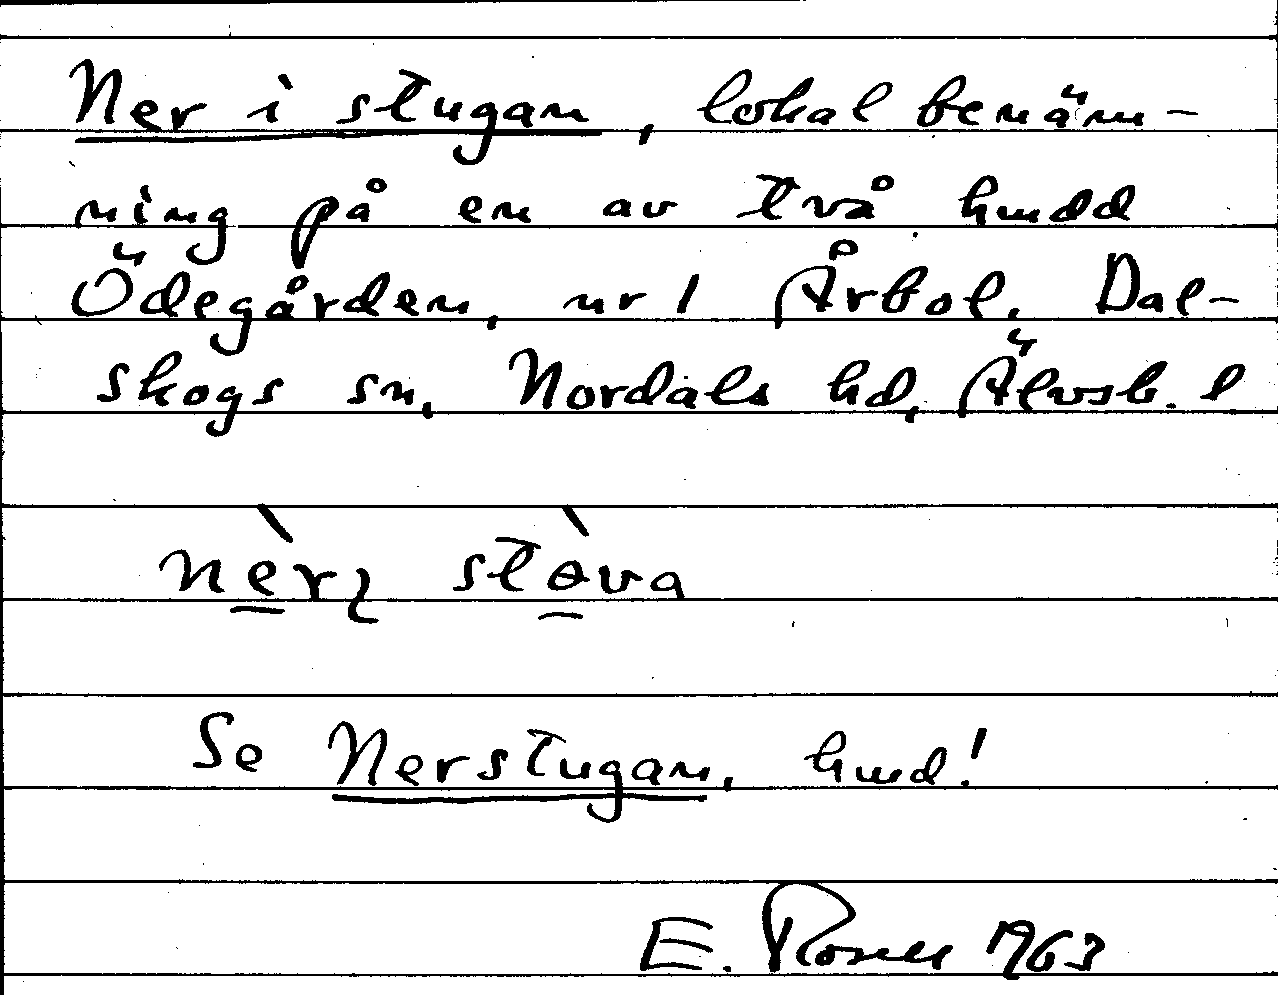 Ner i stugan, lokal benäm-
ning på en av två hmdd
Ödegården, nr 1 Årbol, Dal-
skogs sn, Nordals hd, Älvsb. l
Se Nerstugan, hmd!
E. 1963